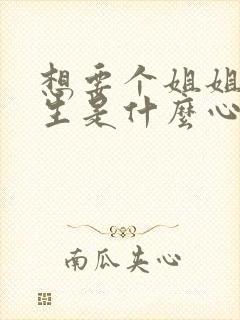 想要个姐姐
生是什麼心
南瓜夹心